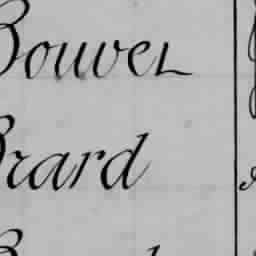 Bouvel
Brard